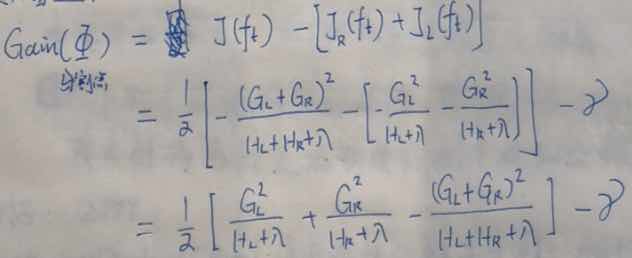 Gain(Φ) = J(f_t) - [J_R(f_t) + J_L(f_t)]
切割点
= 1/2 [ - (G_L+G_R)^2 / (H_L+H_R+λ) - [ - G_L^2 / (H_L+λ) - G_R^2 / (H_R+λ) ] ] - γ
= 1/2 [ G_L^2 / (H_L+λ) + G_R^2 / (H_R+λ) - (G_L+G_R)^2 / (H_L+H_R+λ) ] - γ